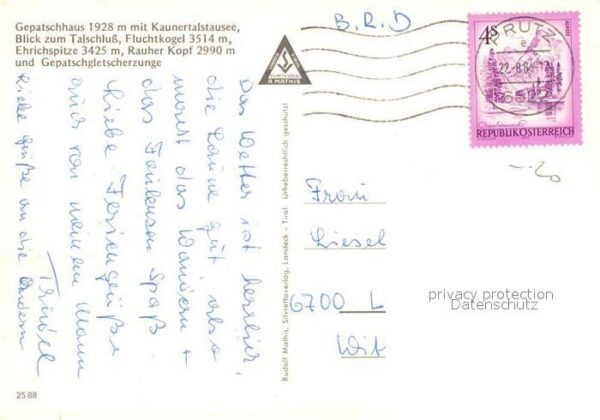 Gepatschhaus 1928 m mit Kaunertalstausee,
Blick zum Talschluß, Fluchtkogel 3514 m,
Ehrichspitze 3425 m, Rauher Kopf 2990 m
und Gepatschgletscherzunge
B.R.D
PRUTZ
6522
4S
REPUBLIK ÖSTERREICH
R. MATHIS
Das Wetter ist herrlich,
die Laune gut also
macht das Wandern +
das Faulensen Spaß.
Liebe Feriengrüße
auch von meinem Mann
Trudel
liebe Grüße an die Andern.
Rudolf Mathis, Silvrettaverlag, Landeck - Tirol Urheberrechtlich geschützt
Frau
Liesel
6700 L
Wit
-.20
privacy protection
Datenschutz
2588